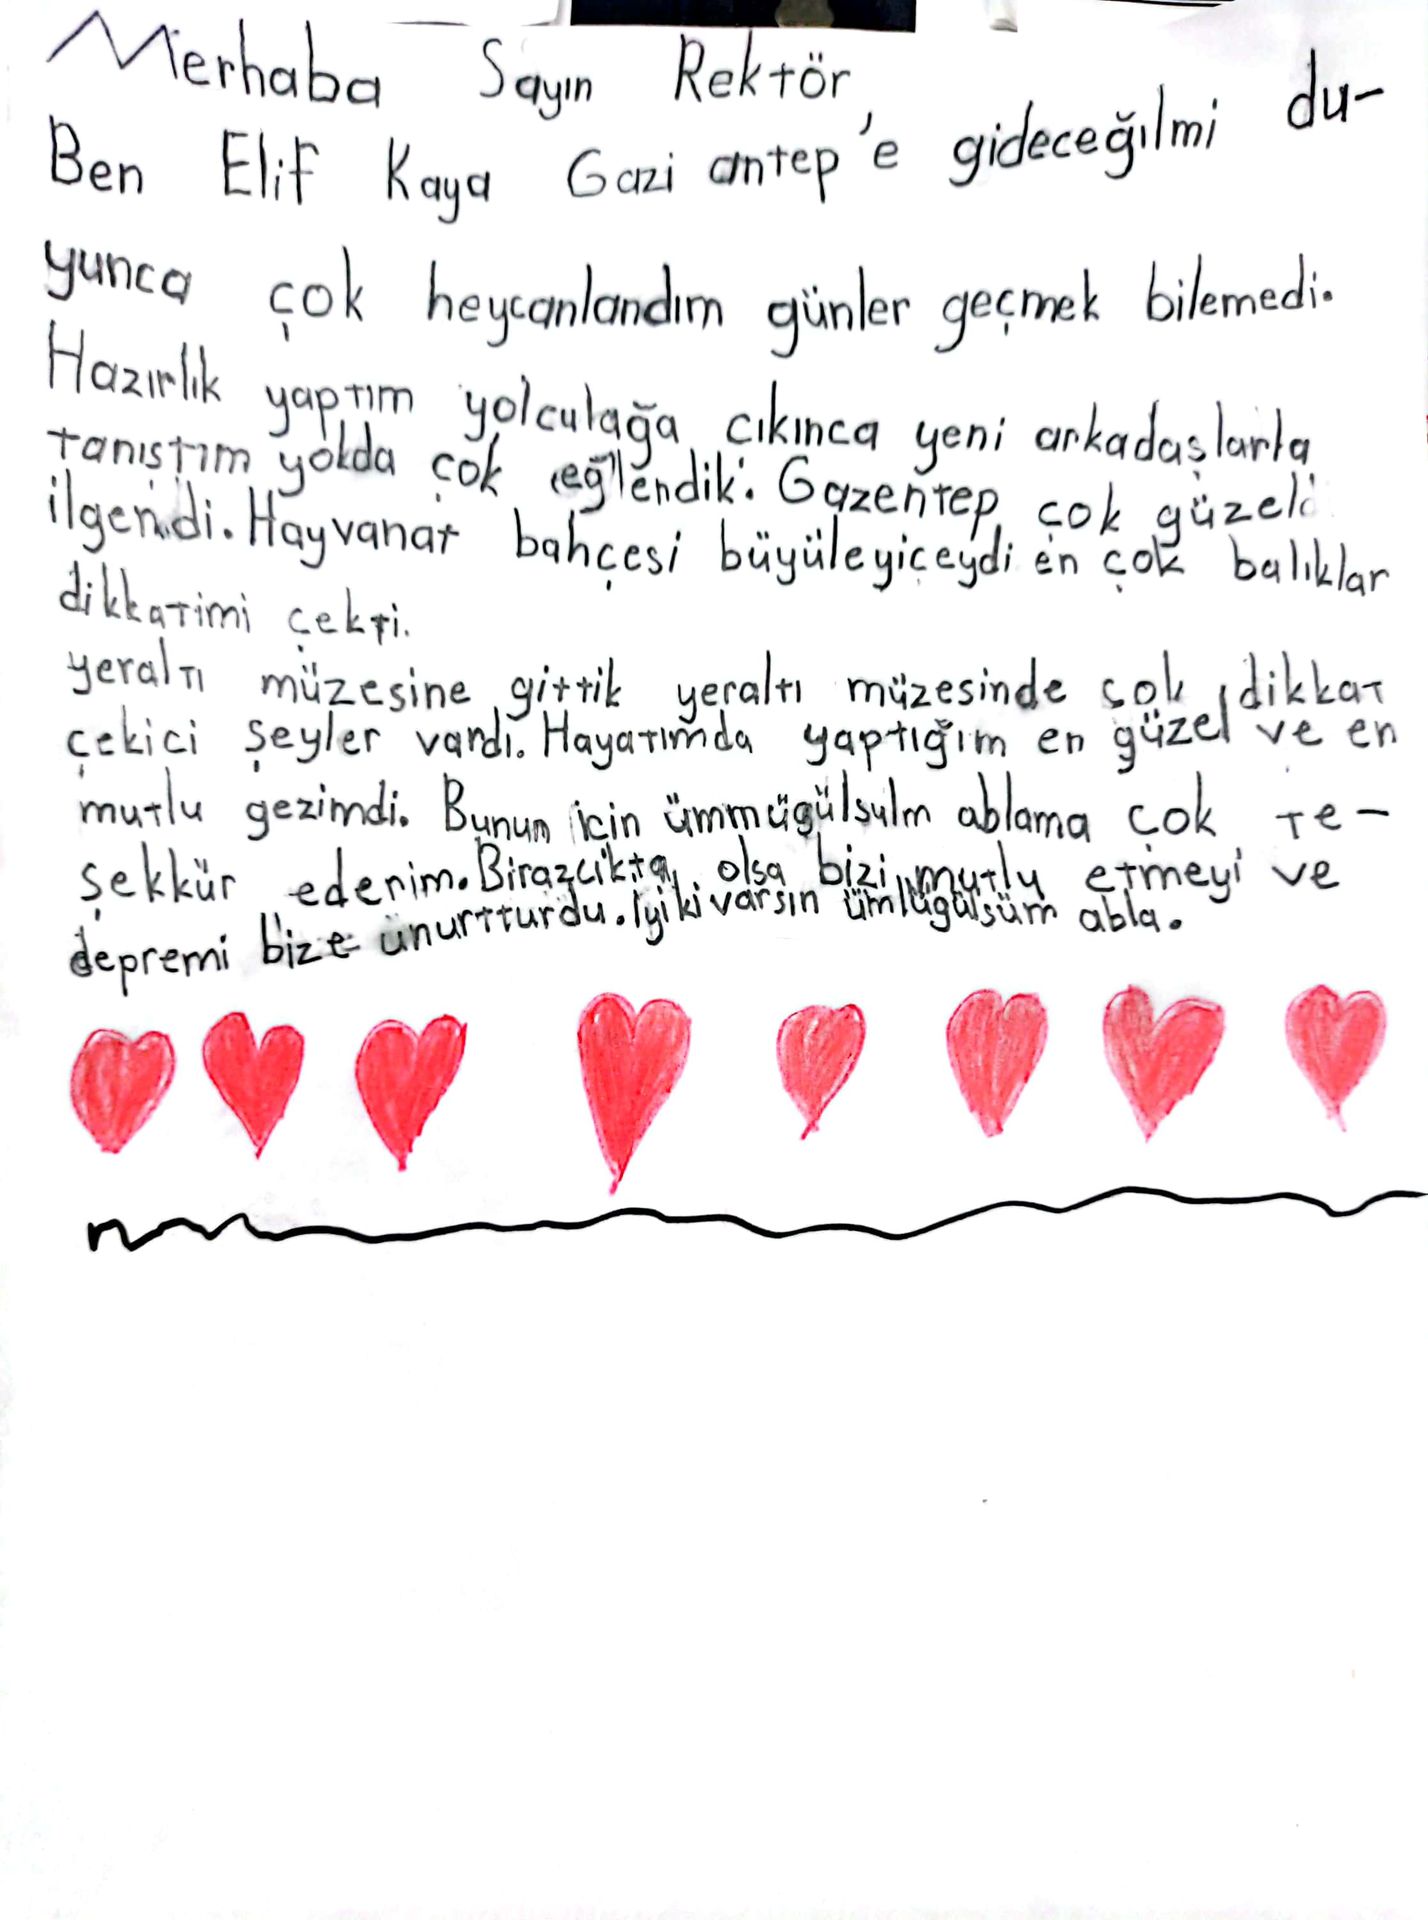 Merhaba Sayın Rektör
Ben Elif Kaya Gazi antep'e gideceğılmi du-
yunca çok heycanlandım günler geçmek bilemedi.
Hazırlık yaptım yolculağa çıkınca yeni arkadaşlarla
tanıştım yolda çok eğlendik. Gazentep çok güzeld
ilgendi. Hayvanat bahçesi büyüleyiçeydi en çok balıklar
dikkatimi çekti.
yeraltı müzesine gittik yeraltı müzesinde çok dikkat
çekici şeyler vardı. Hayatımda yaptığım en güzel ve en
mutlu gezimdi. Bunun için ümmügülsulm ablama çok te-
şekkür ederim. Birazcıkta olsa bizi mutlu etmeyi ve
depremi bize unurtturdu. Iyi ki varsın ümlügülsüm abla.